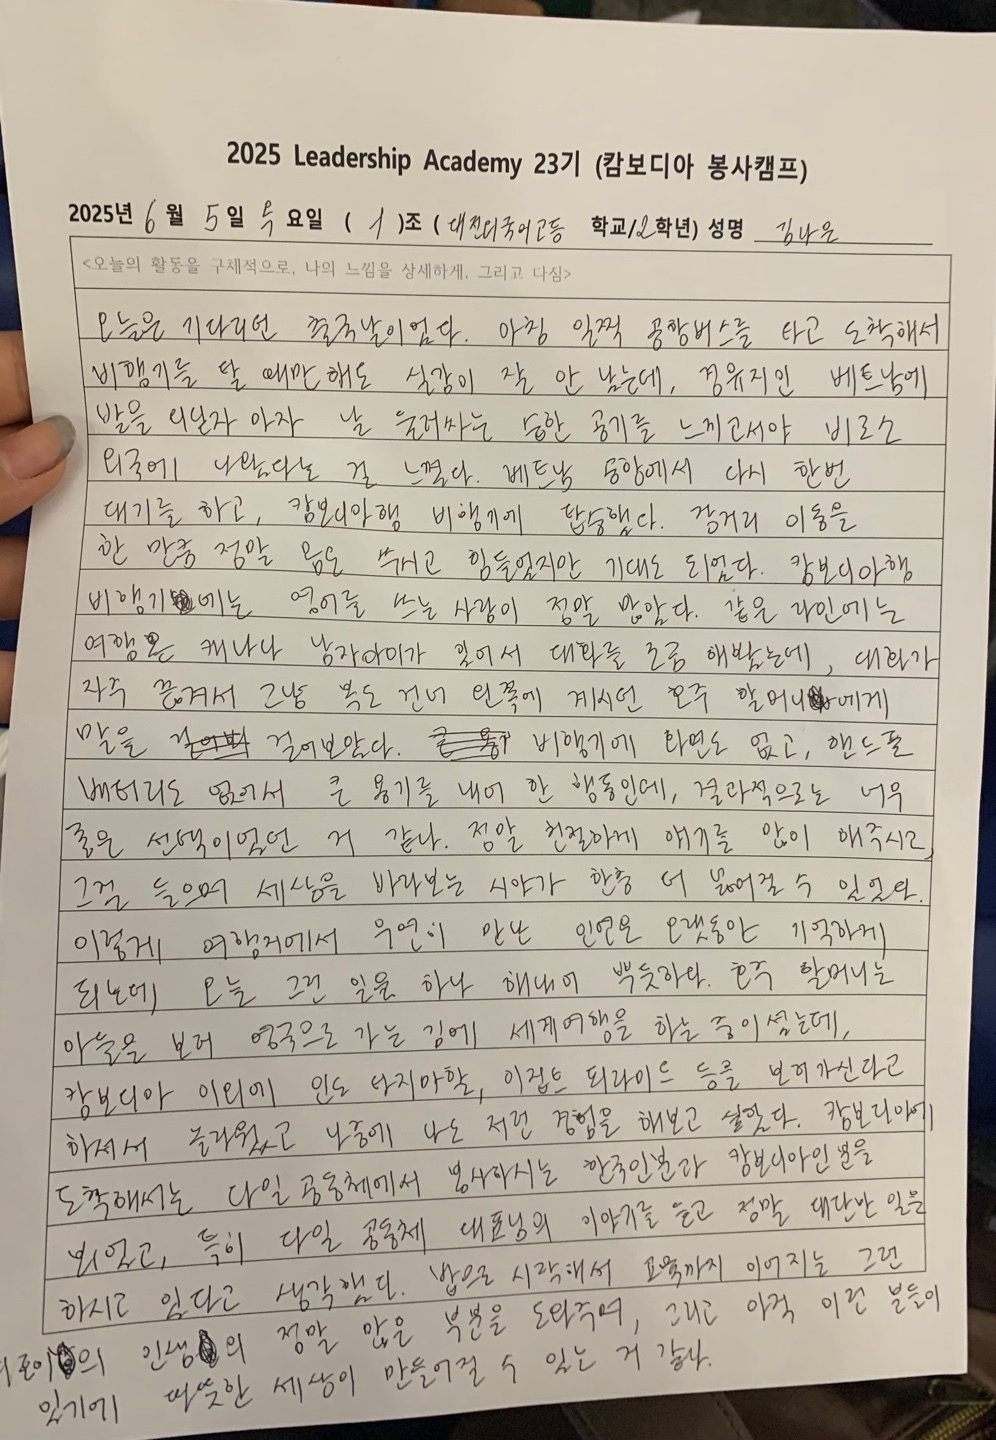 2025 Leadership Academy 23기 (캄보디아 봉사캠프)
2025년 6 월 5 일 목 요일 ( 1 )조 ( 대전외국어고등 학교/2학년) 성명 김나은
<오늘의 활동을 구체적으로, 나의 느낌을 상세하게, 그리고 다짐>
오늘은 기다리던 출국날이었다. 아침 일찍 공항버스를 타고 도착해서
비행기를 탈 때만 해도 실감이 잘 안 났는데, 경유지인 베트남에
발을 내딛자 마자 날 둘러싸는 습한 공기를 느끼고서야 비로소
외국에 나왔다는 걸 느꼈다. 베트남 공항에서 다시 한번
대기를 하고, 캄보디아행 비행기에 탑승했다. 장거리 이동을
한 만큼 정말 몸도 쑤시고 힘들었지만 기대도 되었다. 캄보디아행
비행기에는 영어를 쓰는 사람이 정말 많았다. 같은 라인에는
여행온 캐나다 남자아이가 있어서 대화를 조금 해봤는데, 대화가
자주 끊겨서 그냥 복도 건너 왼쪽에 계시던 호주 할머니에게
말을 걸어보았다. 비행기에 화면도 없고, 핸드폰
배터리도 없어서 큰 용기를 내어 한 행동인데, 결과적으로는 너무
좋은 선택이었던 거 같다. 정말 친절하게 얘기를 많이 해주시고,
그걸 들으며 세상을 바라보는 시야가 한층 더 넓어질 수 있었다.
이렇게 여행지에서 우연히 만난 인연은 오랫동안 기억하게
되는데, 오늘 그런 일을 하나 해내어 뿌듯하다. 호주 할머니는
아들을 보러 영국으로 가는 김에 세계여행을 하는 중이셨는데,
캄보디아 이외에 인도 타지마할, 이집트 피라미드 등을 보러가신다고
하셔서 놀라웠고 나중에 나도 저런 경험을 해보고 싶었다. 캄보디아에
도착해서는 다일공동체에서 봉사하시는 한국인분과 캄보디아인분을
뵈었고, 특히 다일 공동체 대표님의 이야기를 듣고 정말 대단한 일을
하시고 있다고 생각했다. 밥으로 시작해서 교육까지 이어지는 그런
의 인생의 정말 많은 부분을 도와주며, 그리고 아직 이런 분들이
있기에 따뜻한 세상이 만들어질 수 있는 거 같다.